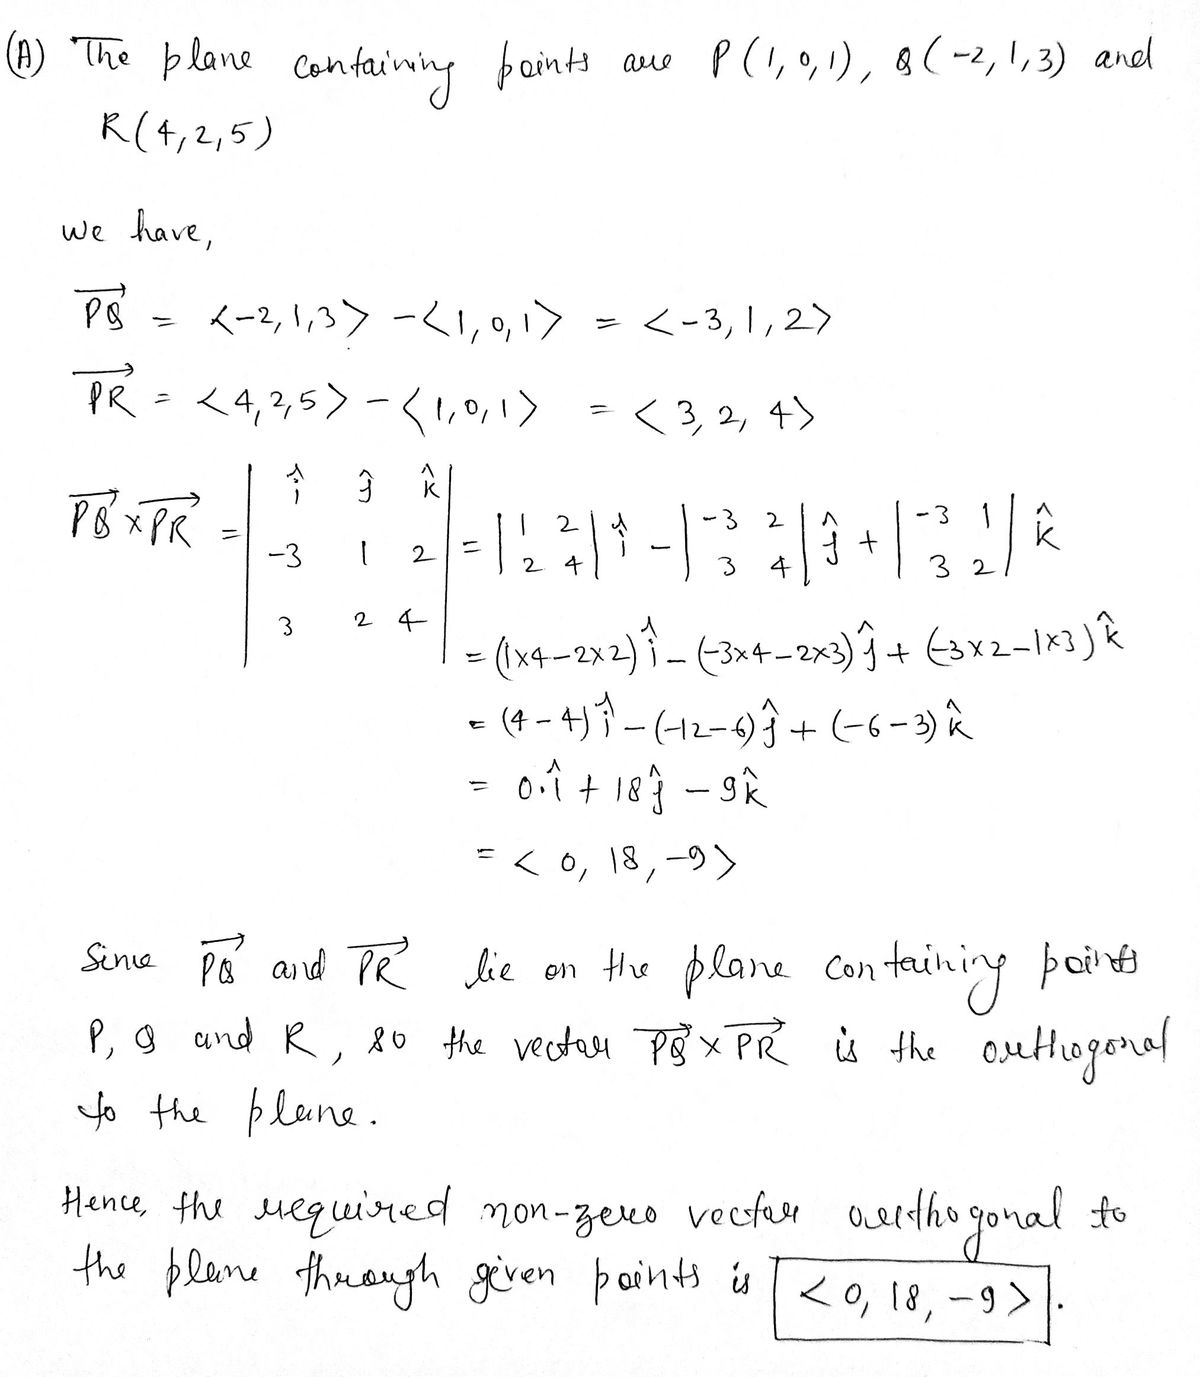 (A) The plane containing points are P(1,0,1), Q(-2,1,3) and
R(4,2,5)
we have,
→PQ = <-2,1,3> - <1,0,1> = <-3,1,2>
→PR = <4,2,5> - <1,0,1> = <3,2,4>
→PQ × →PR = | î ĵ k̂ ; -3 1 2 ; 3 2 4 | = | 1 2 ; 2 4 | î - | -3 2 ; 3 4 | ĵ + | -3 1 ; 3 2 | k̂
= (1×4-2×2) î - (-3×4-2×3) ĵ + (-3×2-1×3) k̂
= (4-4) î - (-12-6) ĵ + (-6-3) k̂
= 0.î + 18ĵ - 9k̂
= <0, 18, -9>
Since →PQ and →PR lie on the plane containing points
P, Q and R, so the vector →PQ × →PR is the orthogonal
to the plane.
Hence, the required non-zero vector orthogonal to
the plane through given points is <0, 18, -9>.